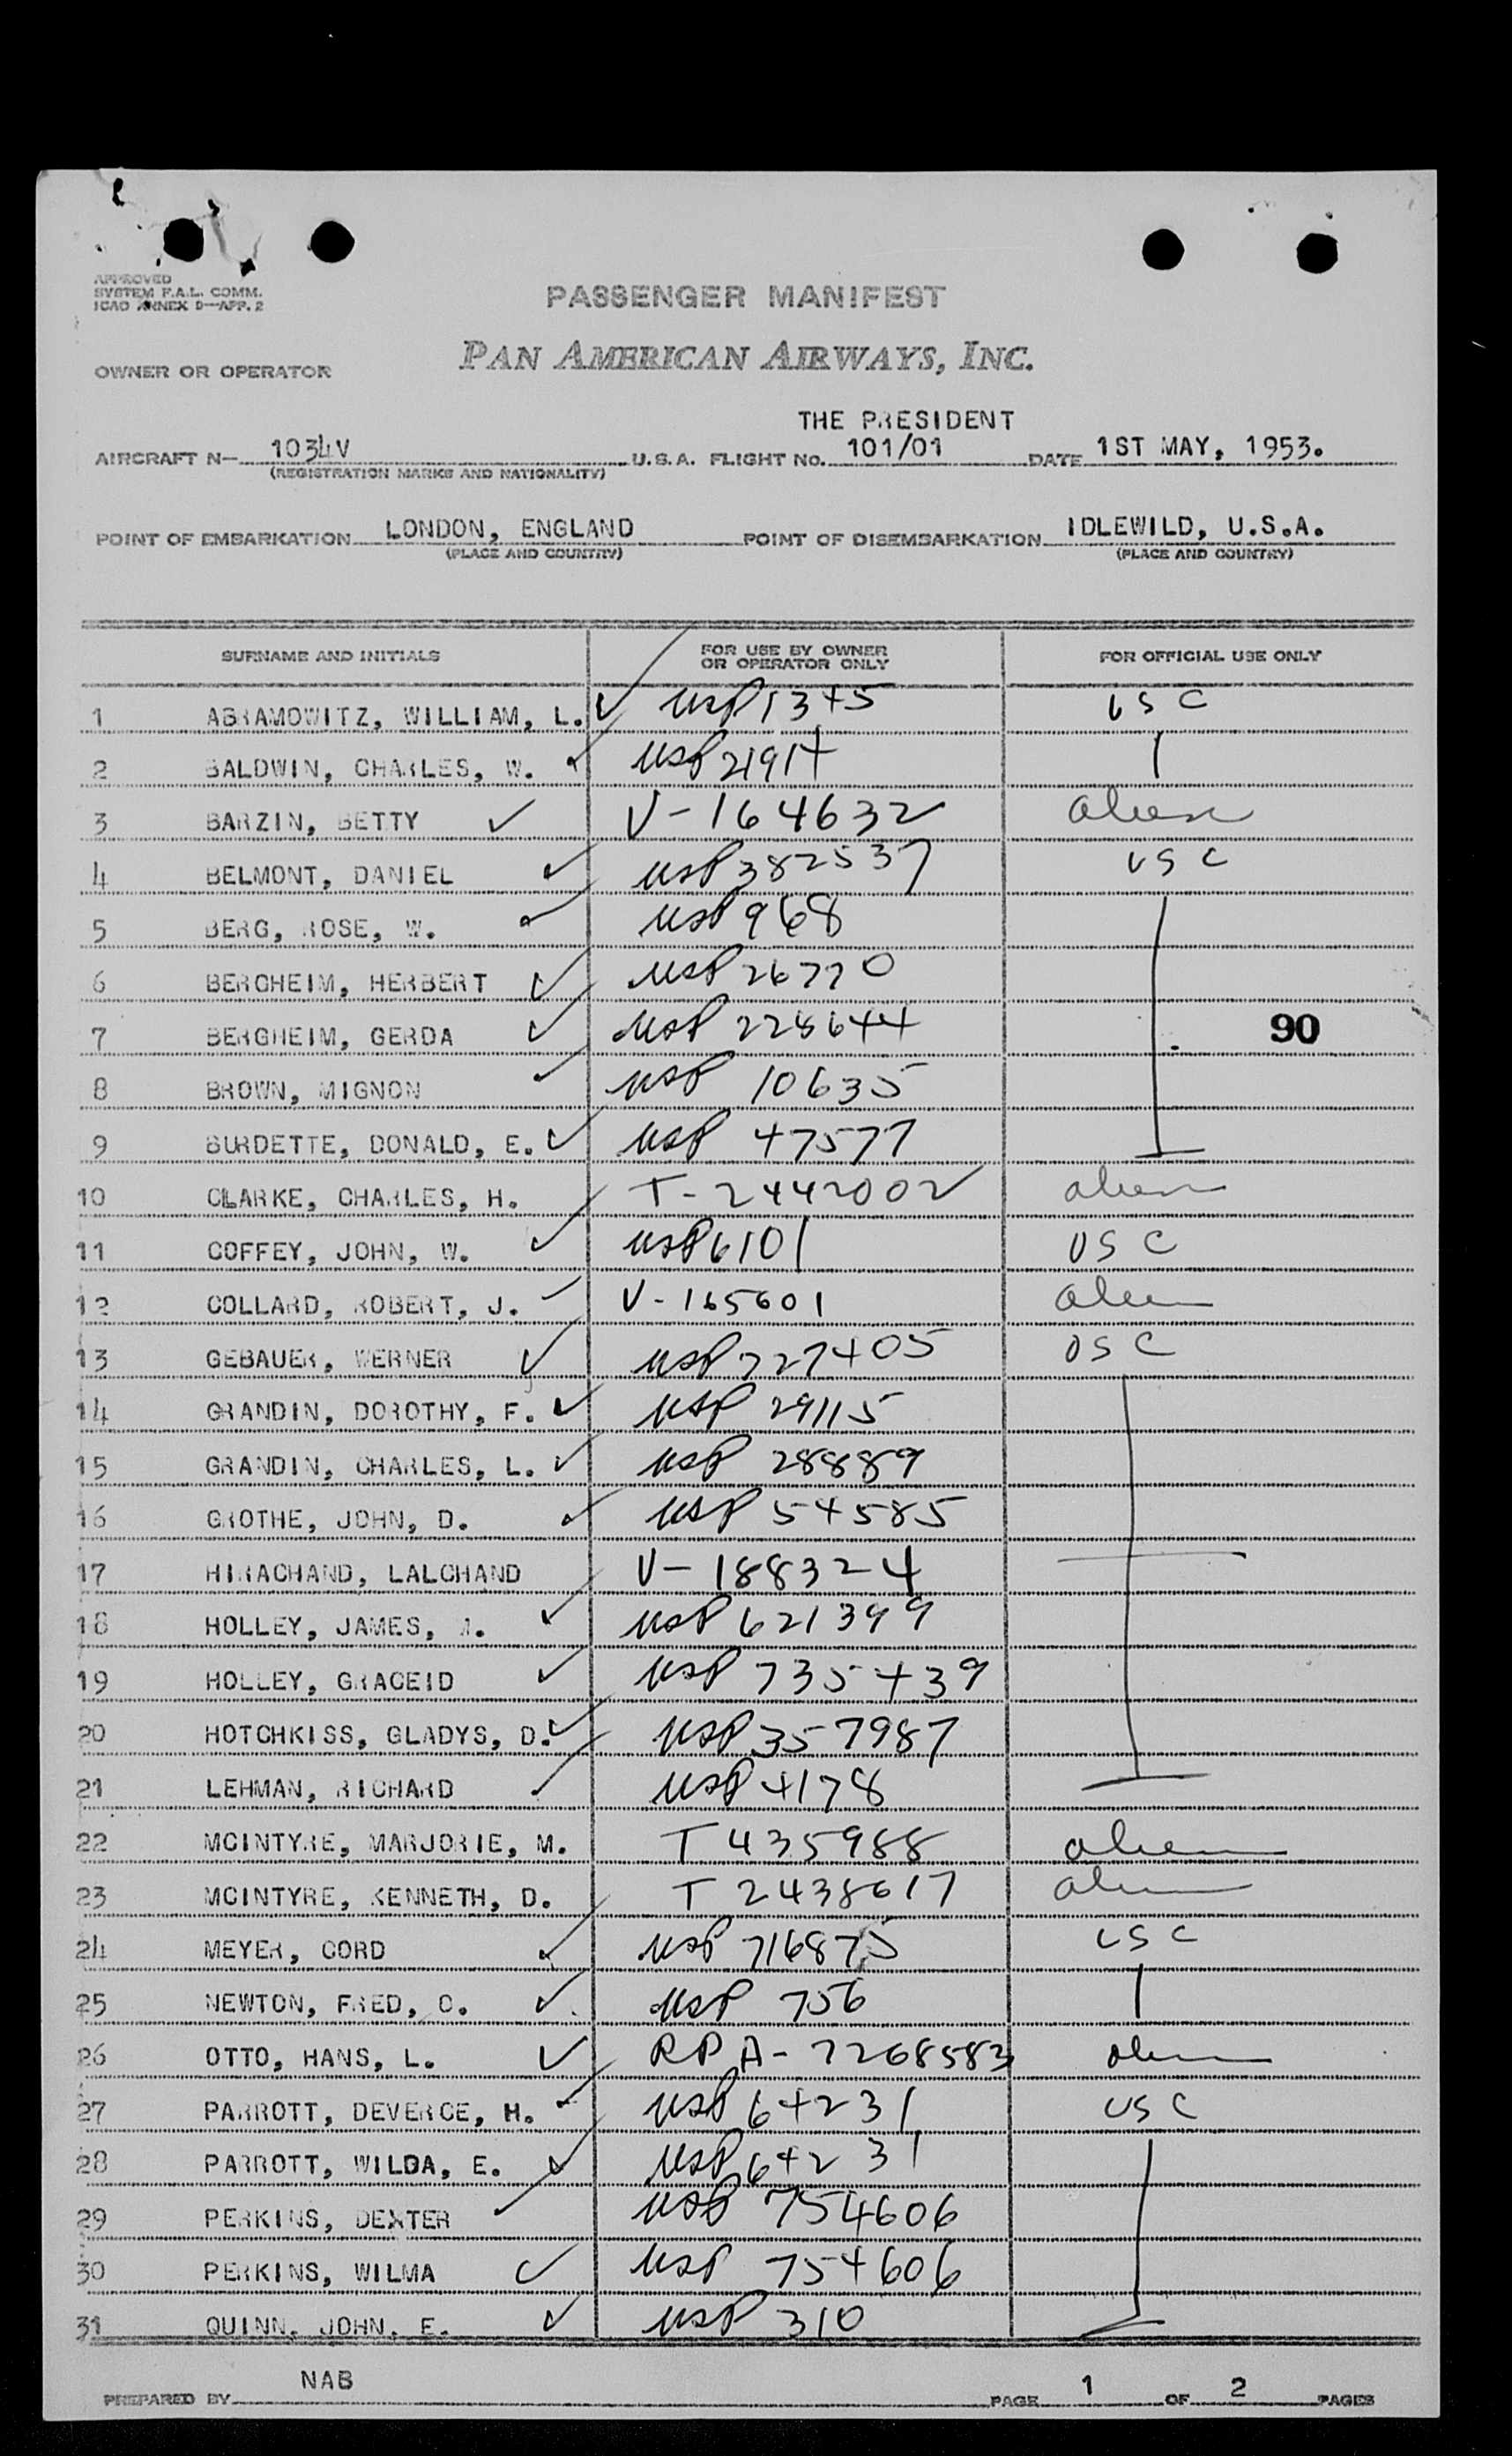 APPROVED
SYSTEM F.A.L. COMM.
ICAO ANNEX 9—APP. 2
PASSENGER MANIFEST
PAN AMERICAN AIRWAYS, INC.
OWNER OR OPERATOR
THE PRESIDENT
AIRCRAFT N— 1034V U.S.A. FLIGHT NO. 101/01 DATE 1ST MAY, 1953.
(REGISTRATION MARKS AND NATIONALITY)
POINT OF EMBARKATION LONDON, ENGLAND POINT OF DISEMBARKATION IDLEWILD, U.S.A.
(PLACE AND COUNTRY) (PLACE AND COUNTRY)
SURNAME AND INITIALS FOR USE BY OWNER OR OPERATOR ONLY FOR OFFICIAL USE ONLY
1 ABRAMOWITZ, WILLIAM, L. USP 1345 USC
2 BALDWIN, CHARLES, W. USP 21914
3 BARZIN, BETTY V-164632 alien
4 BELMONT, DANIEL USP 382537 USC
5 BERG, ROSE, W. USP 968
6 BERGHEIM, HERBERT USP 26770
7 BERGHEIM, GERDA USP 228644 90
8 BROWN, MIGNON USP 10635
9 BURDETTE, DONALD, E. USP 47577
10 CLARKE, CHARLES, H. T-2442002 alien
11 COFFEY, JOHN, W. USP 6101 USC
12 COLLARD, ROBERT, J. V-165601 alien
13 GEBAUER, WERNER USP 727405 USC
14 GRANDIN, DOROTHY, F. USP 29115
15 GRANDIN, CHARLES, L. USP 28889
16 GROTHE, JOHN, D. USP 54585
17 HIRACHAND, LALCHAND V-188324
18 HOLLEY, JAMES, USP 621399
19 HOLLEY, GRACEID USP 735439
20 HOTCHKISS, GLADYS, D. USP 357987
21 LEHMAN, RICHARD USP 4178
22 MCINTYRE, MARJORIE, M. T 435988 alien
23 MCINTYRE, KENNETH, D. T 2438617 alien
24 MEYER, CORD USP 716875 USC
25 NEWTON, FRED, O. USP 756
26 OTTO, HANS, L. RP A-7268583 alien
27 PARROTT, DEVERCE, H. USP 64231 USC
28 PARROTT, WILDA, E. USP 64231
29 PERKINS, DEXTER USP 754606
30 PERKINS, WILMA USP 754606
31 QUINN, JOHN, E. USP 310
PREPARED BY NAB PAGE 1 OF 2 PAGES